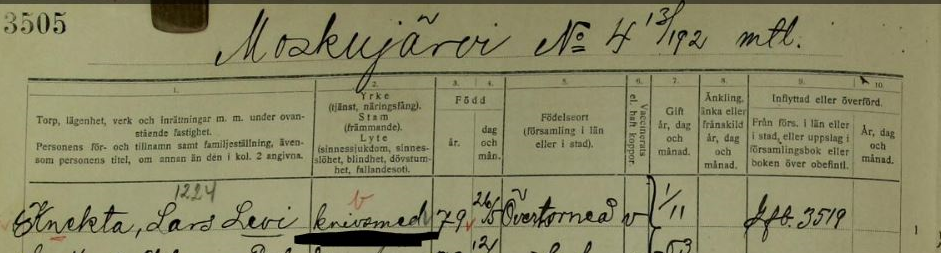 3505
Moskujärvi No 4 13/192 mtl.
1. 2. 3. 4. 5. 6. 7. 8. 9. 10.
Torp, lägenhet, verk och inrättningar m. m. under ovan-
stående fastighet.
Personens för- och tillnamn samt familjeställning, även-
som personens titel, om annan än den i kol. 2 angivna.
Yrke
(tjänst, näringsfång).
Stam
(främmande).
Lyte
(sinnessjukdom, sinnes-
slöhet, blindhet, dövstum-
het, fallandesot).
Född
år.
dag
och
mån.
Födelseort
(församling i län
eller i stad).
Vaccinerats
el. haft koppor.
Gift
år, dag
och
månad.
Änkling,
änka eller
frånskild
år, dag
och
månad.
Inflyttad eller överförd.
Från förs. i län eller
i stad, eller uppslag i
församlingsbok eller
boken över obefintl.
År, dag
och
månad.
1224
Knekta, Lars Levi knivsmed 79 26/5 Övertorneå v 1/11 Jfb. 3519 1